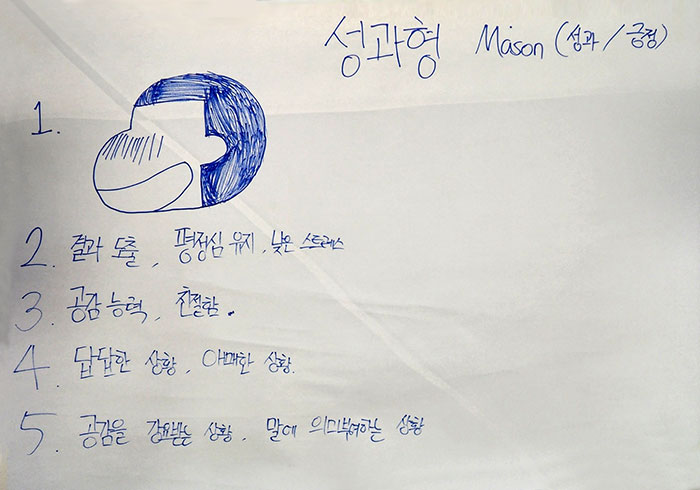 성과형 Mason (성과 / 긍정)
1.
2. 결과 도출, 평정심 유지, 낮은 스트레스
3. 공감 능력, 친절함.
4. 답답한 상황, 애매한 상황.
5. 공감을 강요받는 상황, 말에 의미부여하는 상황